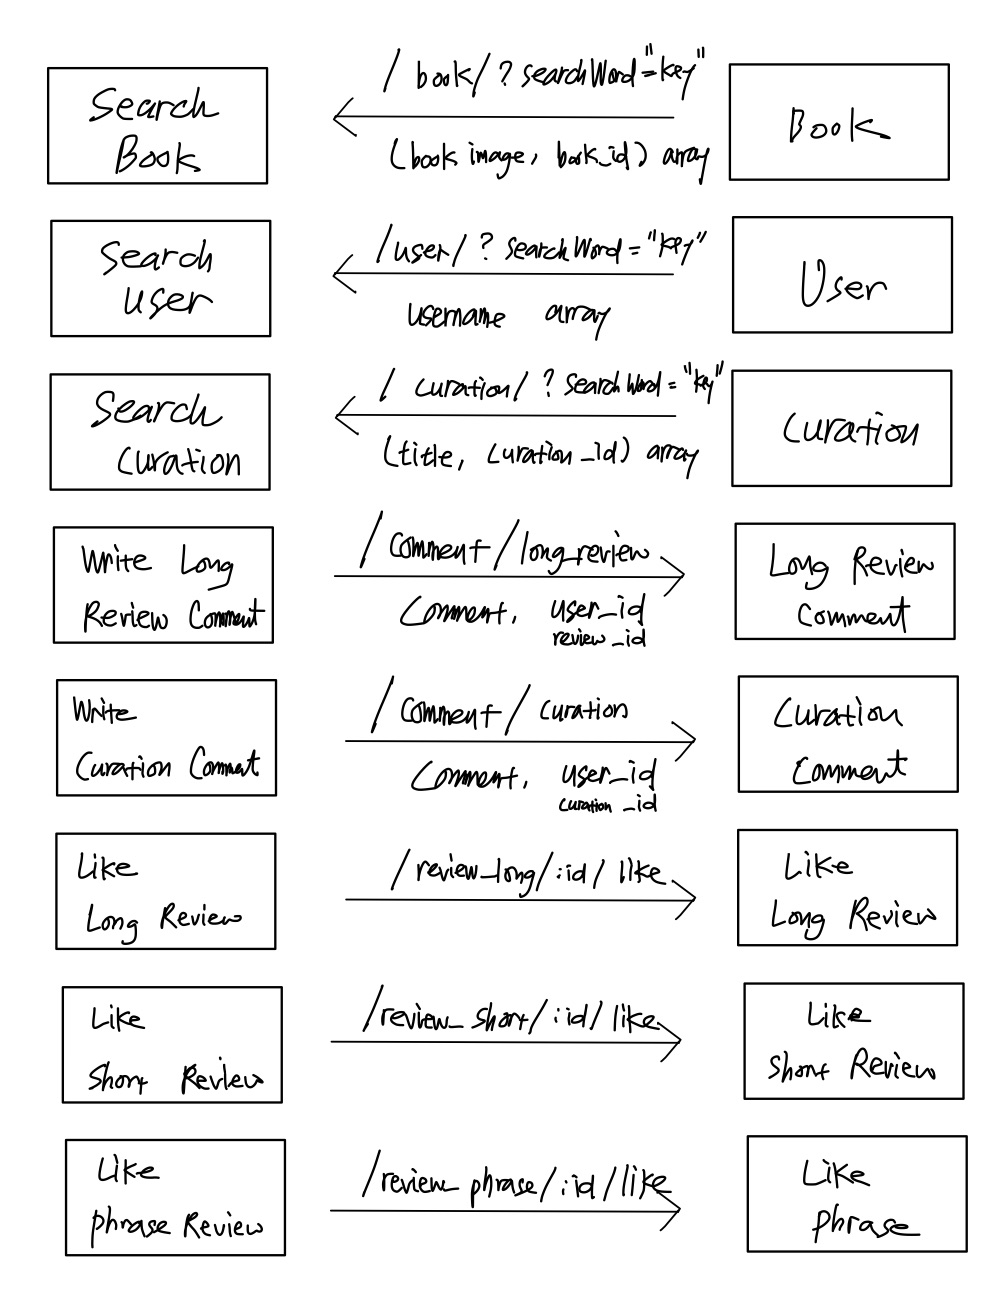 Search
Book
/ book/ ? searchWord="key"
(book image, book_id) array
Book
Search
user
/user/ ? searchWord = "key"
username array
User
Search
Curation
/ curation/ ? searchWord = "key"
(title, curation_id) array
Curation
Write Long
Review Comment
/Comment/long_review
Comment, user_id
review_id
Long Review
Comment
Write
Curation Comment
/Comment/ curation
Comment, user_id
curation_id
Curation
Comment
Like
Long Review
/review_long/:id/ like
Like
Long Review
Like
Short Review
/review_short/:id/like
Like
Short Review
Like
phrase Review
/review_phrase/:id/like
Like
phrase